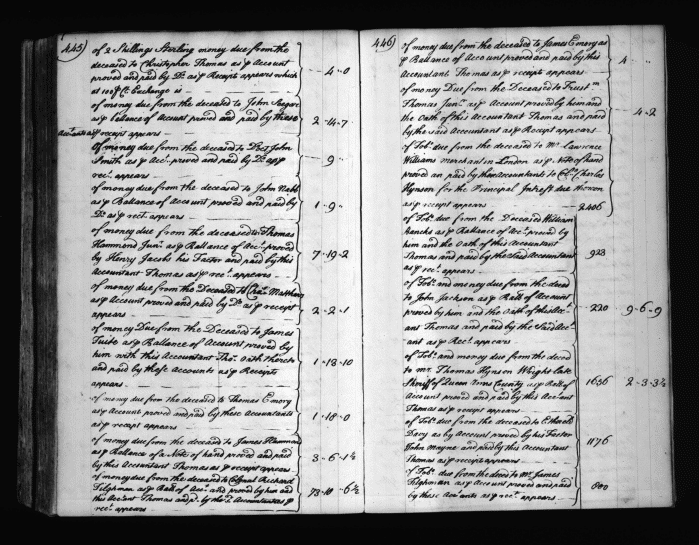 445)
of 2 Shillings Sterling money due from the
deceased to Christopher Thomas as ℘ Account
proved and paid by Do. as ℘ Receipt appears which
at 100 ℘ Ct. Exchange is — 4 - 0
of money due from the deceased to John
as ℘ ballance of Account proved and paid by these
Accts. as ℘ receipt appears — 2 - 14 - 7
Of money due from the deceased to Doct. John
Smith as ℘ Acct. proved and paid by Do. as ℘
rect. appears — 9 "
of money due from the deceased to John Nabb
as ℘ Ballance of Account proved and paid by
Do. as ℘ rect. appears — 1 - 9 "
of money due from the deceased to Thomas
Hammond Junr. as ℘ Ballance of Acct. proved
by Henry Jacobs his Factor and paid by this
Accountant Thomas as ℘ rect. appears — 7 - 19 - 2
of money due from the Deceased to Matthew
as ℘ Account proved and paid by Do. as ℘ receipt
appears — 2 - 2 - 1
of money Due from the Deceased to James
as ℘ Ballance of Account proved by
him with this Accountant Thos. Oath thereto
and paid by these Accounts as ℘ Receipts
appears — 1 - 13 - 10
of money due from the deceased to Thomas Emory
as ℘ Account proved and paid by these Accountants
as ℘ receipt appears — 1 - 18 - 0
of money due from the deceased to James
as ℘ Ballance of a Note of hand proved and paid
by this Accountant Thomas as ℘ receipt appears — 3 - 6 - 1½
of money due from the deceased to Colonel Richard
Tilghman as ℘ Ball. of Acct. and proved by him and
this Accant Thomas and pd. by the Accountant as ℘
rect. appears — 73 - 10 - 6½
446)
of money due from the deceased to James Emory as
℘ Ballance of Account proved and paid by this
Accountant Thomas as ℘ receipt appears — 4 "
of money Due from the Deceased to
Thomas Junr. as ℘ Account proved by him and
the Oath of this Accountant Thomas and paid
by the said Accountant as ℘ Receipt appears — 4 - 2
of Tobo. due from the deceased to Mr. Lawrence
Williams merchant in London as ℘ Note of hand
proved an paid by these Accountants to Charles
Hynson for the Principal Intrest due thereon
as ℘ receipt appears — 2406
of Tobo. due from the Deceased William
as ℘ Ballance of Acct. proved by
him and the Oath of this Accountant
Thomas and paid by the Said Accountant
as ℘ rect. appears — 923
of Tobo. and money due from the deced
to John Jackson as ℘ Ball. of Account
proved by him and the Oath of this Acc-
ant Thomas and paid by the Said Acc-
ant as ℘ Rect. appears — 220 9 - 6 - 9
of Tobo. and money due from the deced
to mr. Thomas Hynson Wright late
Sheriff of Queen Anns County as ℘ Ball. of
Account proved and paid by this Accant
Thomas as ℘ receipt appears — 1636 2 - 3 - 3½
of Tobo. due from the deceased to
as by Account proved by his Factor
John Wayne and paid by this Accountant
Thomas as ℘ receipt appears — 1176
of Tobo. due from the deced to Mr. James
Tilghman as ℘ Account proved and paid
by these Accants as ℘ rect. appears — 600